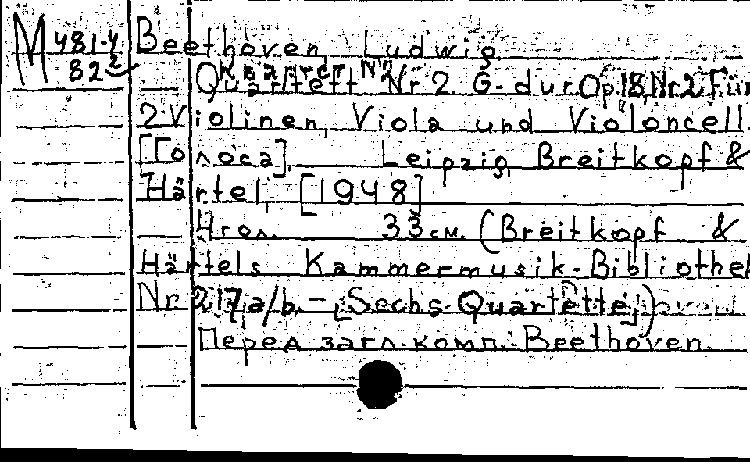 М 481-4 Beethoven Ludwig
82
Quartett Nr 2 G-dur Op. 18, Nr. 2 Für
2 Violinen, Viola und Violoncell
[Голоса]. Leipzig, Breitkopf &
Härtel, [1948]
4 гол. 33 см. (Breitkopf &
Härtels Kammermusik-Bibliothek
Nr 217 a/b. - [Sechs Quartette])
Перед загл. комп. Beethoven